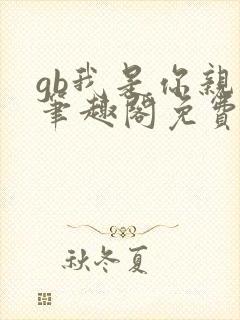 gb我是你亲
笔趣阁免费
秋冬夏